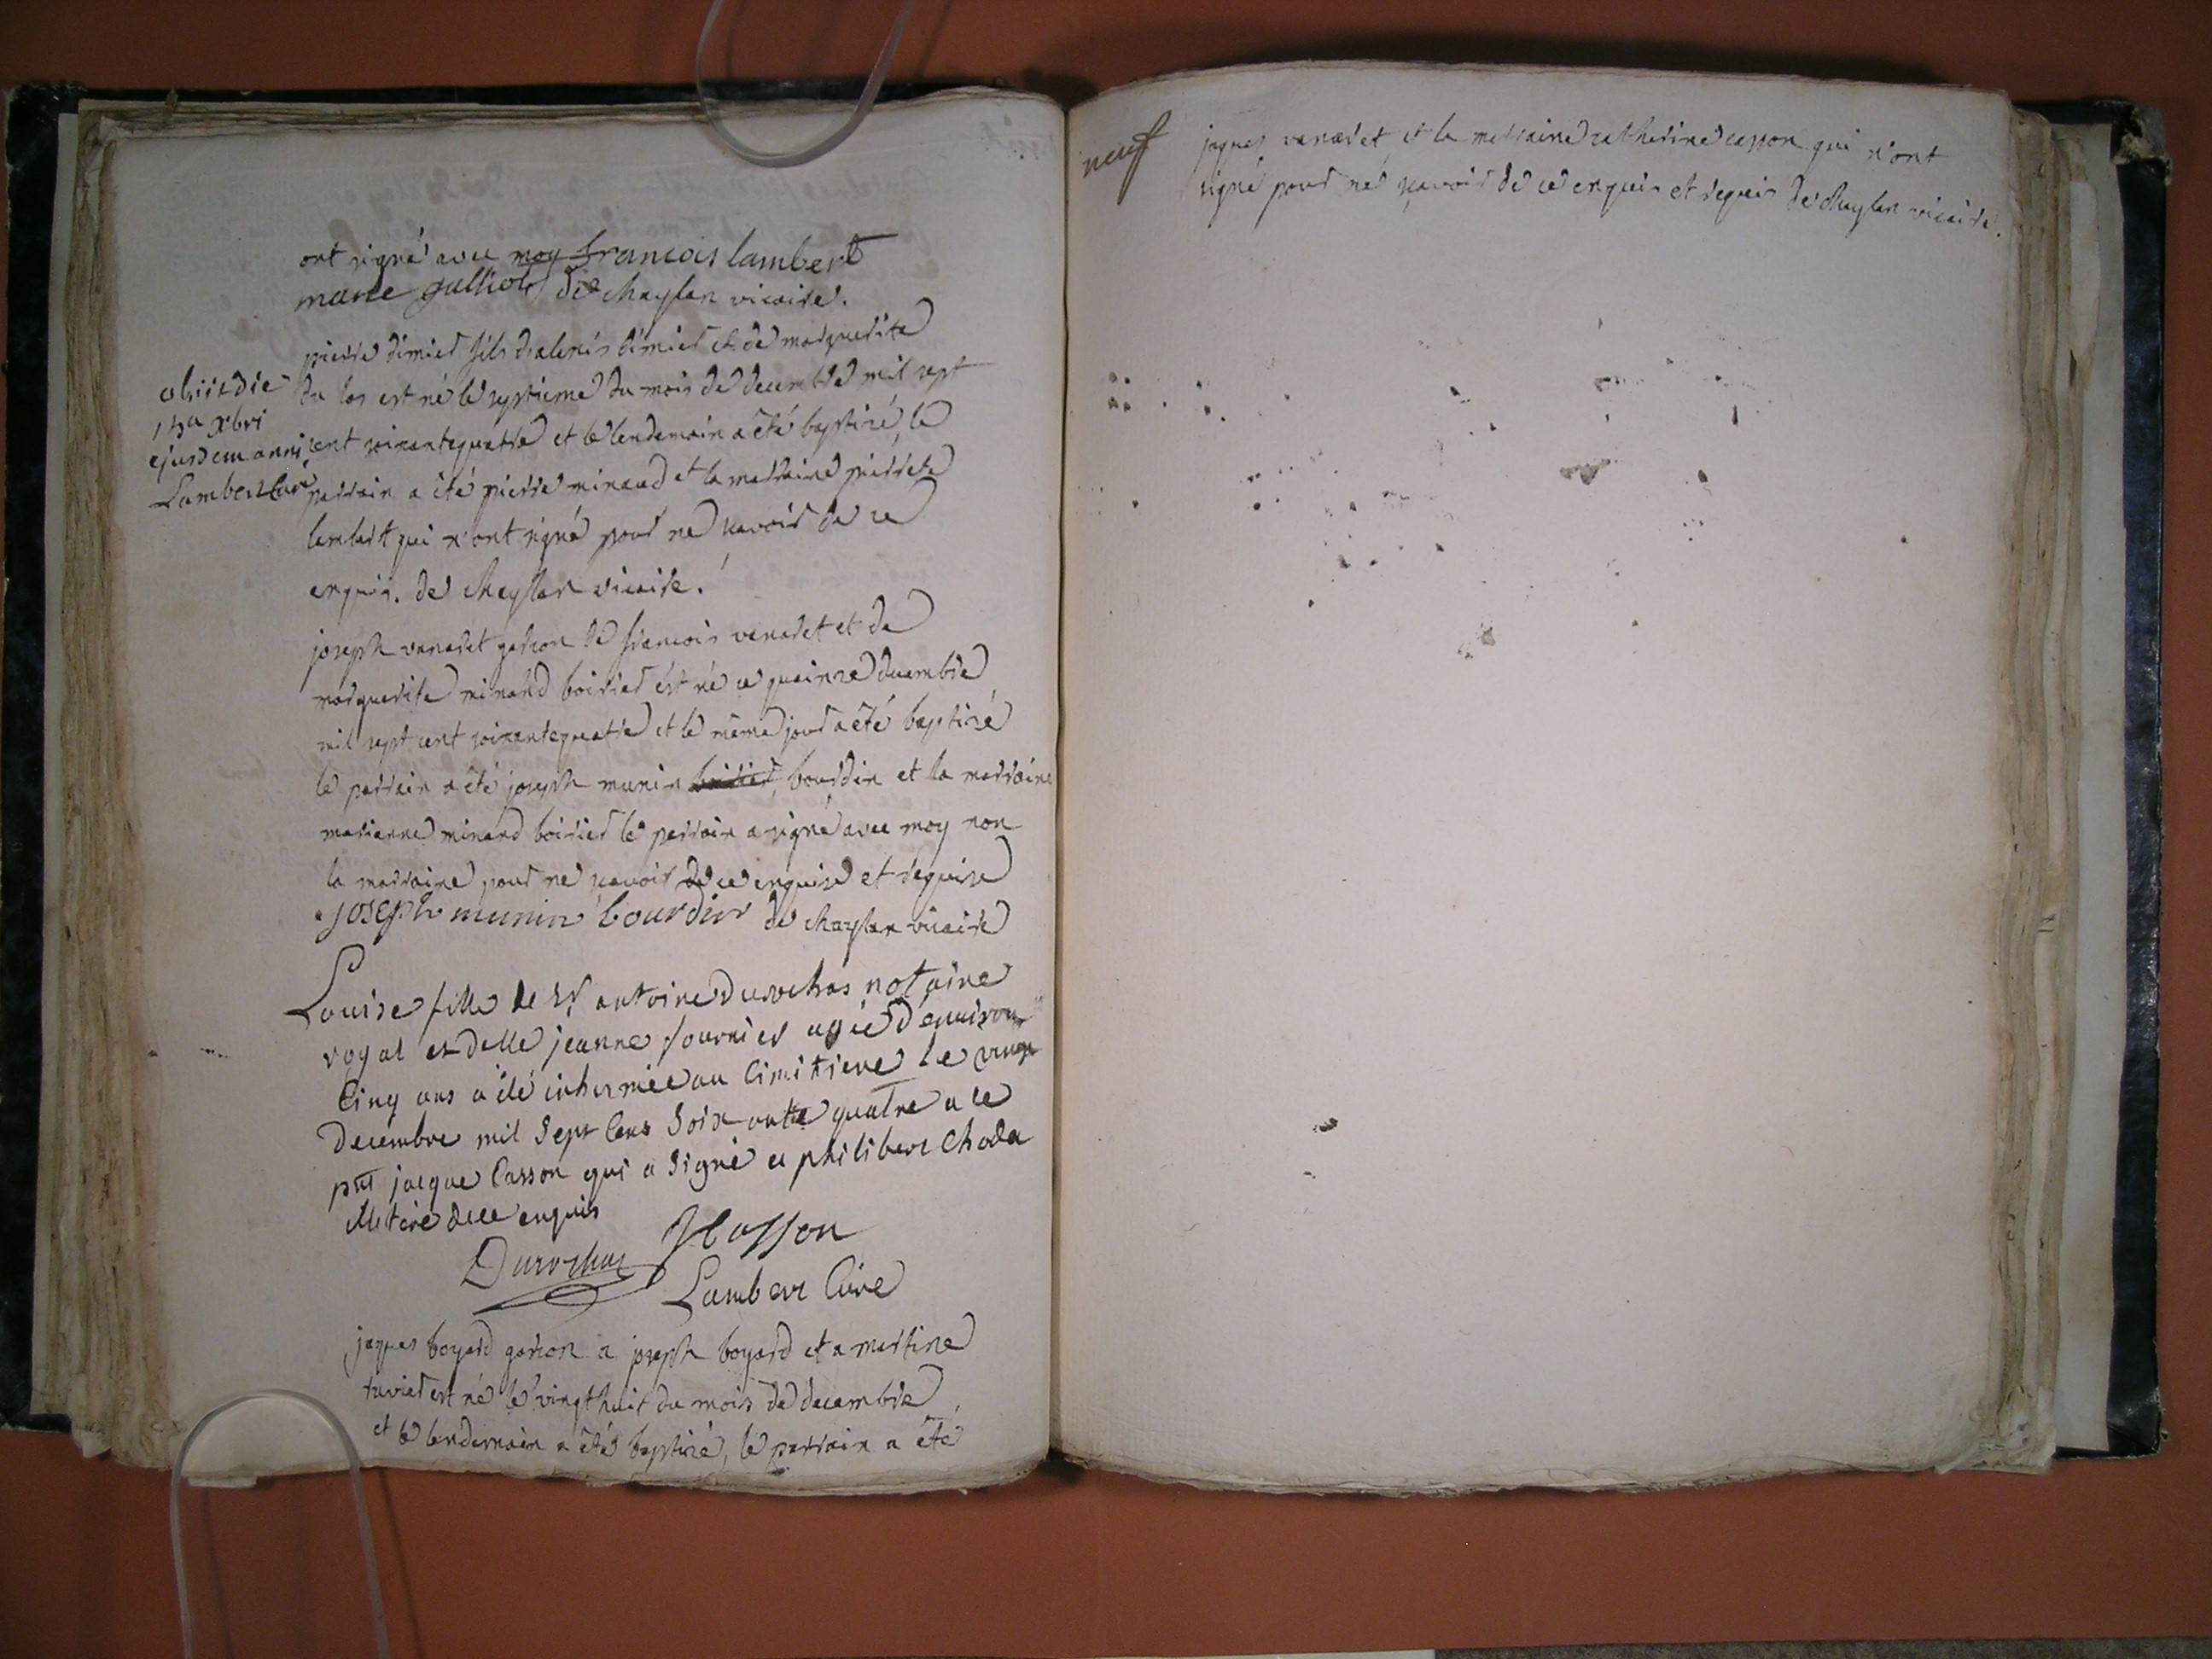 ont signé avec moy francois lambert
marie galliot de chaylan vicaire.
pierre dimier fils d'alexis dimier et de marguerite
du los est né le septieme du mois de decembre mil sept
cent soixantequatre et le lendemain a été baptizé, le
parrain a été pierre minaud et la marraine pierrete
lambert qui n'ont signé pour ne scavoir de ce
enquis. de chaylan vicaire.
obiit die
xbri
ejusdem anni
Lambert Curé
joseph vanaret garcon de francois vanaret et de
marguerite minard boirier est né ce quainze decembre
mil sept cent soixantequatre et le même jour a été baptizé
le parrain a été joseph munin bourdin et la marraine
marianne minard boirier le parrain a signé avec moy non
la marraine pour ne scavoir de ce enquise et requise
joseph munin bourdin de chaylan vicaire
Louise fille de Sr antoine Durochas notaire
royal et delle jeanne fournier agée d'environ
Cinq ans a été inhumée au Cimitiere le vingt
decembre mil Sept Cens Soixante quatre a ce
pnt jacque Casson qui a Signé et philibert Choda
illiteré de ce enquis
Durochas JCasson
Lambert Curé
jaques boyard garcon a joseph boyard et a martine
tavier est né le vingt huit du mois de decembre
et le lendemain a été baptizé, le parrain a été
neuf
jaques vanaret et la marraine catherine casson qui n'ont
signé pour ne scavoir de ce enquis et requis de chaylan vicaire.